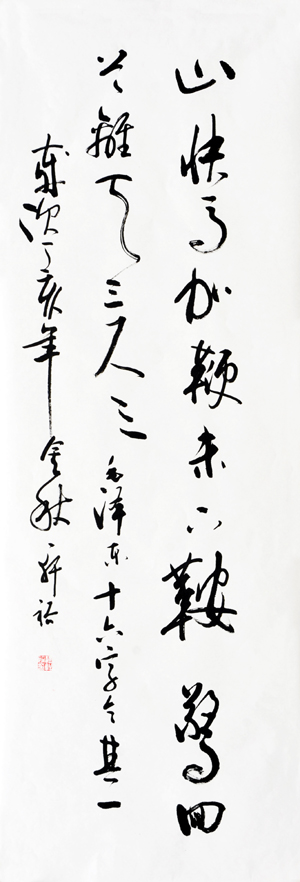 山快马加鞭未下鞍惊回
首离天三尺三 毛泽东十六字令其一
岁次丁亥年金秋 轩裕